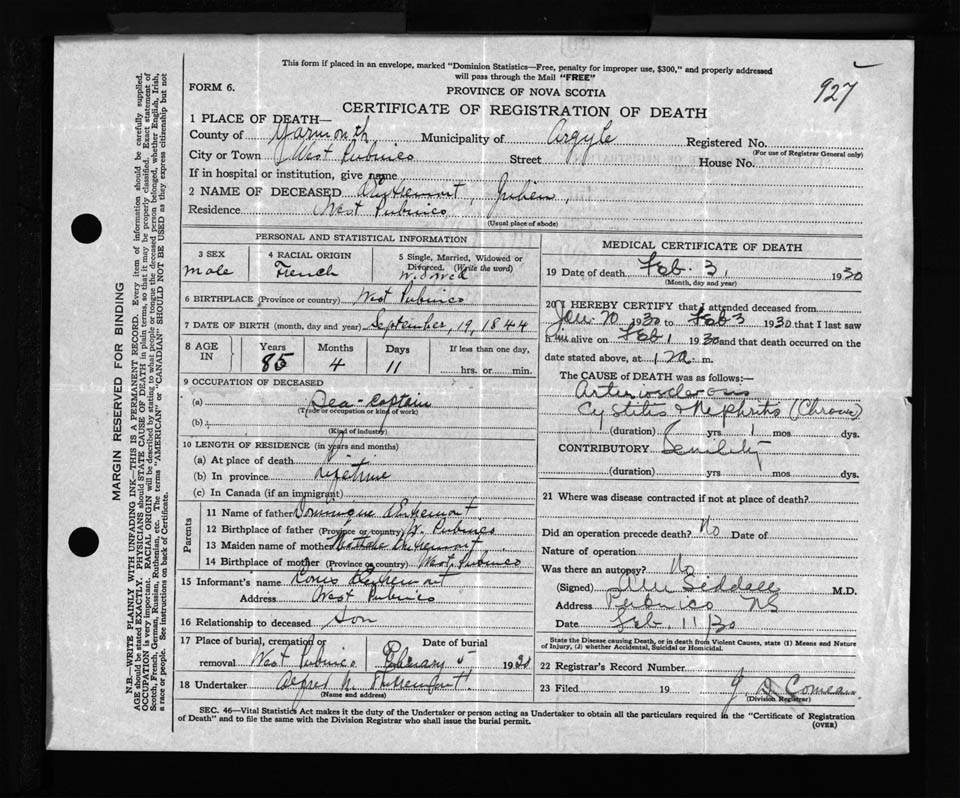 This form if placed in an envelope, marked "Dominion Statistics—Free, penalty for improper use, $300," and properly addressed
will pass through the Mail "FREE"
927
FORM 6.
PROVINCE OF NOVA SCOTIA
CERTIFICATE OF REGISTRATION OF DEATH
1 PLACE OF DEATH—
County of Yarmouth Municipality of Argyle Registered No.
(For use of Registrar General only)
City or Town West Pubnico Street House No.
If in hospital or institution, give name
2 NAME OF DECEASED D'Entremont, Julien,
Residence West Pubnico
(Usual place of abode)
PERSONAL AND STATISTICAL INFORMATION
3 SEX
Male
4 RACIAL ORIGIN
French
5 Single, Married, Widowed or
Divorced. (Write the word)
6 BIRTHPLACE (Province or country) West Pubnico
7 DATE OF BIRTH (month, day and year) September, 19, 1844
8 AGE IN
Years Months Days If less than one day,
85 4 11 hrs. or min.
9 OCCUPATION OF DECEASED
(a) Sea-Captain
(Trade or occupation or kind of work)
(b)
(Kind of industry)
10 LENGTH OF RESIDENCE (in years and months)
(a) At place of death
(b) In province Lifetime
(c) In Canada (if an immigrant)
Parents
11 Name of father Dominique D'Entremont
12 Birthplace of father (Province or country) W. Pubnico
13 Maiden name of mother D'Entremont
14 Birthplace of mother (Province or country) West Pubnico
15 Informant's name Louis D'Entremont
Address West Pubnico
16 Relationship to deceased Son
17 Place of burial, cremation or
removal West Pubnico
Date of burial
February 5 19
18 Undertaker Alfred N. D'Entremont
(Name and address)
MEDICAL CERTIFICATE OF DEATH
19 Date of death Feb. 3, 1930
(Month, day and year)
20 I HEREBY CERTIFY that I attended deceased from
Jan 20 1930 to Feb 3 1930 that I last saw
him alive on Feb 1 1930 and that death occurred on the
date stated above, at 1 a. m.
The CAUSE of DEATH was as follows:—
Arteriosclerosis
Cystitis & Nephritis (Chronic)
(duration) yrs 1 mos dys.
CONTRIBUTORY Senility
(duration) yrs mos dys.
21 Where was disease contracted if not at place of death?
Did an operation precede death? No Date of
Nature of operation
Was there an autopsy? No
(Signed) M.D.
Address Pubnico NS
Date Feb. 11/30
State the Disease causing Death, or in death from Violent Causes, state (1) Means and Nature
of Injury, (2) whether Accidental, Suicidal or Homicidal.
22 Registrar's Record Number
23 Filed 19 Comeau
(Division Registrar)
SEC. 46—Vital Statistics Act makes it the duty of the Undertaker or person acting as Undertaker to obtain all the particulars required in the "Certificate of Registration
of Death" and to file the same with the Division Registrar who shall issue the burial permit.
(OVER)
MARGIN RESERVED FOR BINDING
N.B.—WRITE PLAINLY WITH UNFADING INK—THIS IS A PERMANENT RECORD. Every item of information should be carefully supplied.
AGE should be stated EXACTLY. PHYSICIANS should STATE CAUSE OF DEATH in plain terms, so that it may be properly classified. Exact statement of
OCCUPATION is very important. RACIAL ORIGIN will be described by stating to what people or tongue the deceased person belonged, whether English, Irish,
Scotch, French, German, Russian, Ruthenian, etc. The terms "AMERICAN" or "CANADIAN" SHOULD NOT BE USED as they express citizenship but not
a race or people. See instructions on back of Certificate.